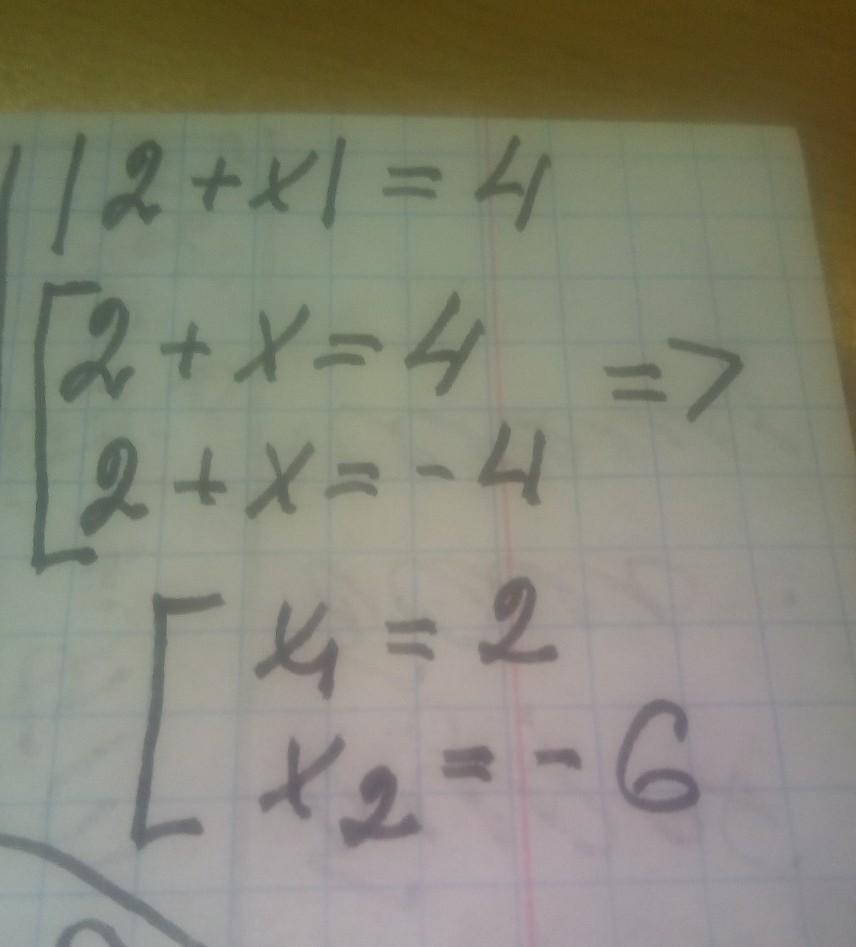 |2+x|=4
[2+x=4 =>
2+x=-4
[x₁=2
x₂=-6